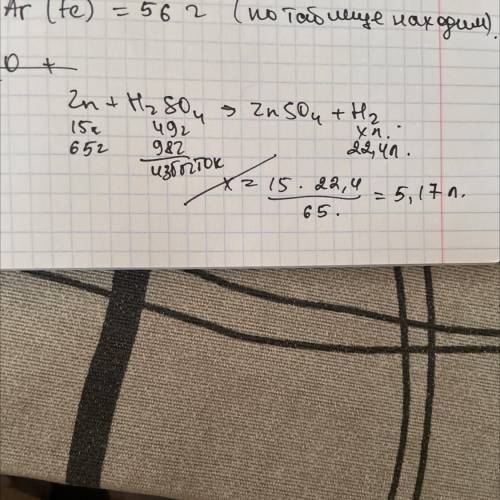 Ar (Fe) = 56 г (по таблице находим).
O +
Zn + H2SO4 → ZnSO4 + H2
15г 49г x л.
65г 98г 22,4л.
избыток
x = 15 · 22,4 / 65. = 5,17 л.